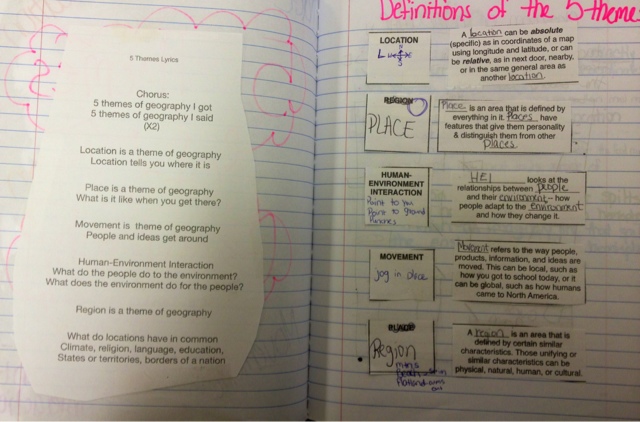 5 Themes Lyrics
Chorus:
5 themes of geography I got
5 themes of geography I said
(X2)
Location is a theme of geography
Location tells you where it is
Place is a theme of geography
What is it like when you get there?
Movement is theme of geography
People and ideas get around
Human-Environment Interaction
What do the people do to the environment?
What does the environment do for the people?
Region is a theme of geography
What do locations have in common
Climate, religion, language, education,
States or territories, borders of a nation
Definitions of the 5 theme
LOCATION
A location can be absolute
(specific) as in coordinates of a map
using longitude and latitude, or can
be relative, as in next door, nearby,
or in the same general area as
another location.
REGION
PLACE
Place is an area that is defined by
everything in it. Places have
features that give them personality
& distinguish them from other
Places.
HUMAN-
ENVIRONMENT
INTERACTION
Point to you
Point to ground
HEI looks at the
relationships between people
and their environment – how
people adapt to the environment
and how they change it.
MOVEMENT
jog in place
Movement refers to the way people,
products, information, and ideas are
moved. This can be local, such as
how you got to school today, or it
can be global, such as how humans
came to North America.
PLACE
Region
A region is an area that is
defined by certain similar
characteristics. Those unifying or
similar characteristics can be
physical, natural, human, or cultural.